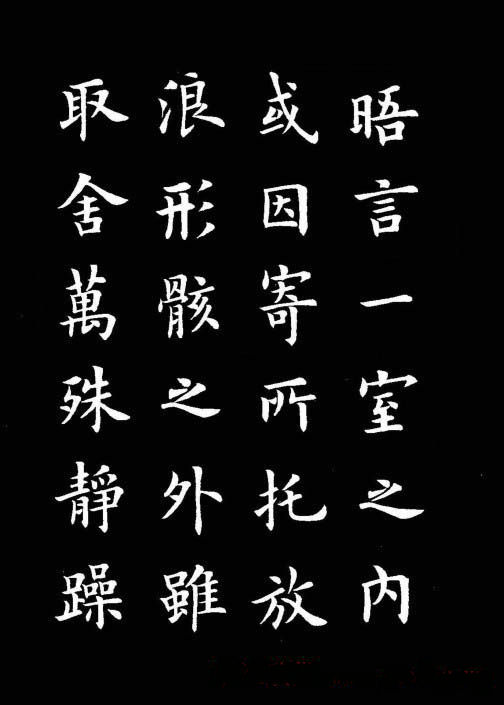 晤言一室之内
或因寄所托放
浪形骸之外雖
取舍萬殊静躁